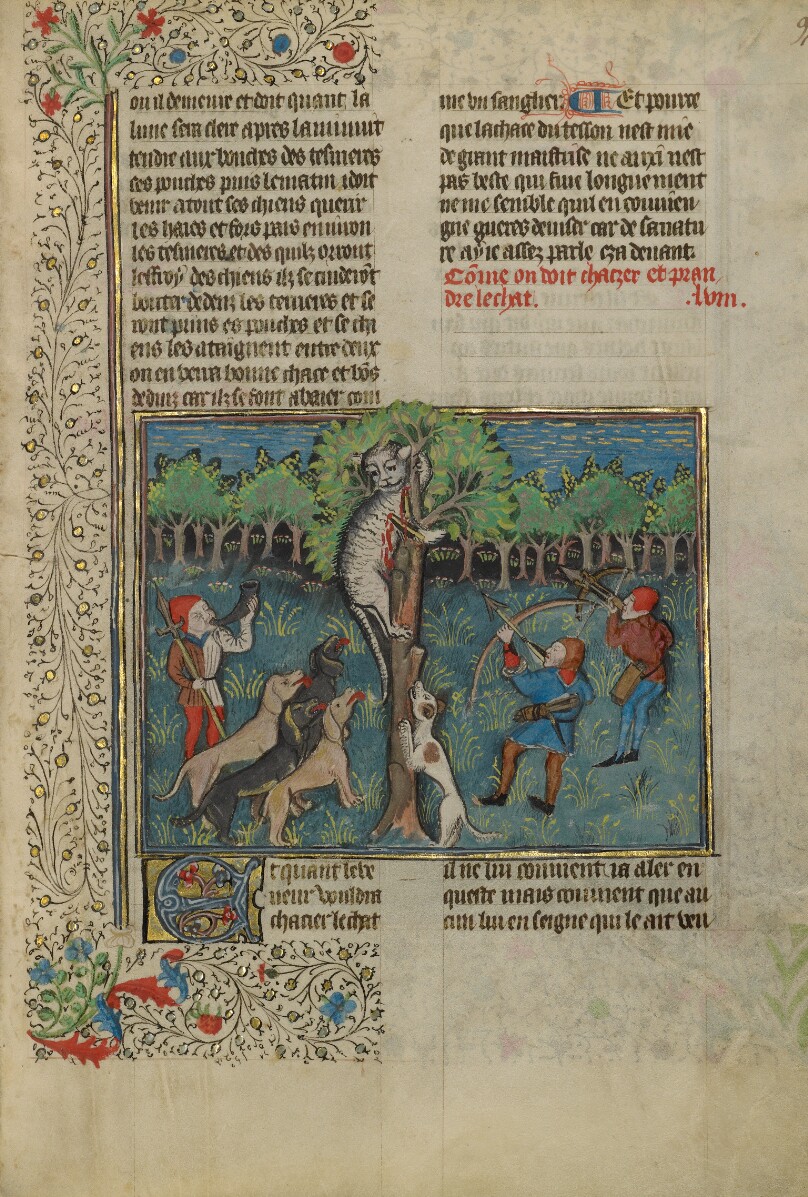 ou il demeure et doit quant la
lune sera clere apres la minuit
tendre aux bouches des tesnieres
ces pouches puis le matin doit
venir a tout ses chiens querir
les haies et fors pais environ
les tesnieres et des quilz orront
leffroy des chiens ilz se cuideront
bouter dedenz les tenieres et se
ront prins es pouches et se chi
ens les ataignent entre deux
on en verra bonne chace et bõs
deduiz car ilz se font abaier com
me un sanglier Et pource
que la chace du tesson nest mie
de grant maistrise ne auxi nest
pas beste qui fuie longuement
ne me semble quil en convien
gne gueres deviser car de sa natu
re ay ie assez parle cza devant.
Cõme on doit chaczer et pran
dre le chat. .lviii.
Et quant le ve
neur vouldra
chacier le chat
il ne lui convient ia aler en
queste mais convient que au
cun lui enseigne qui le ait veu